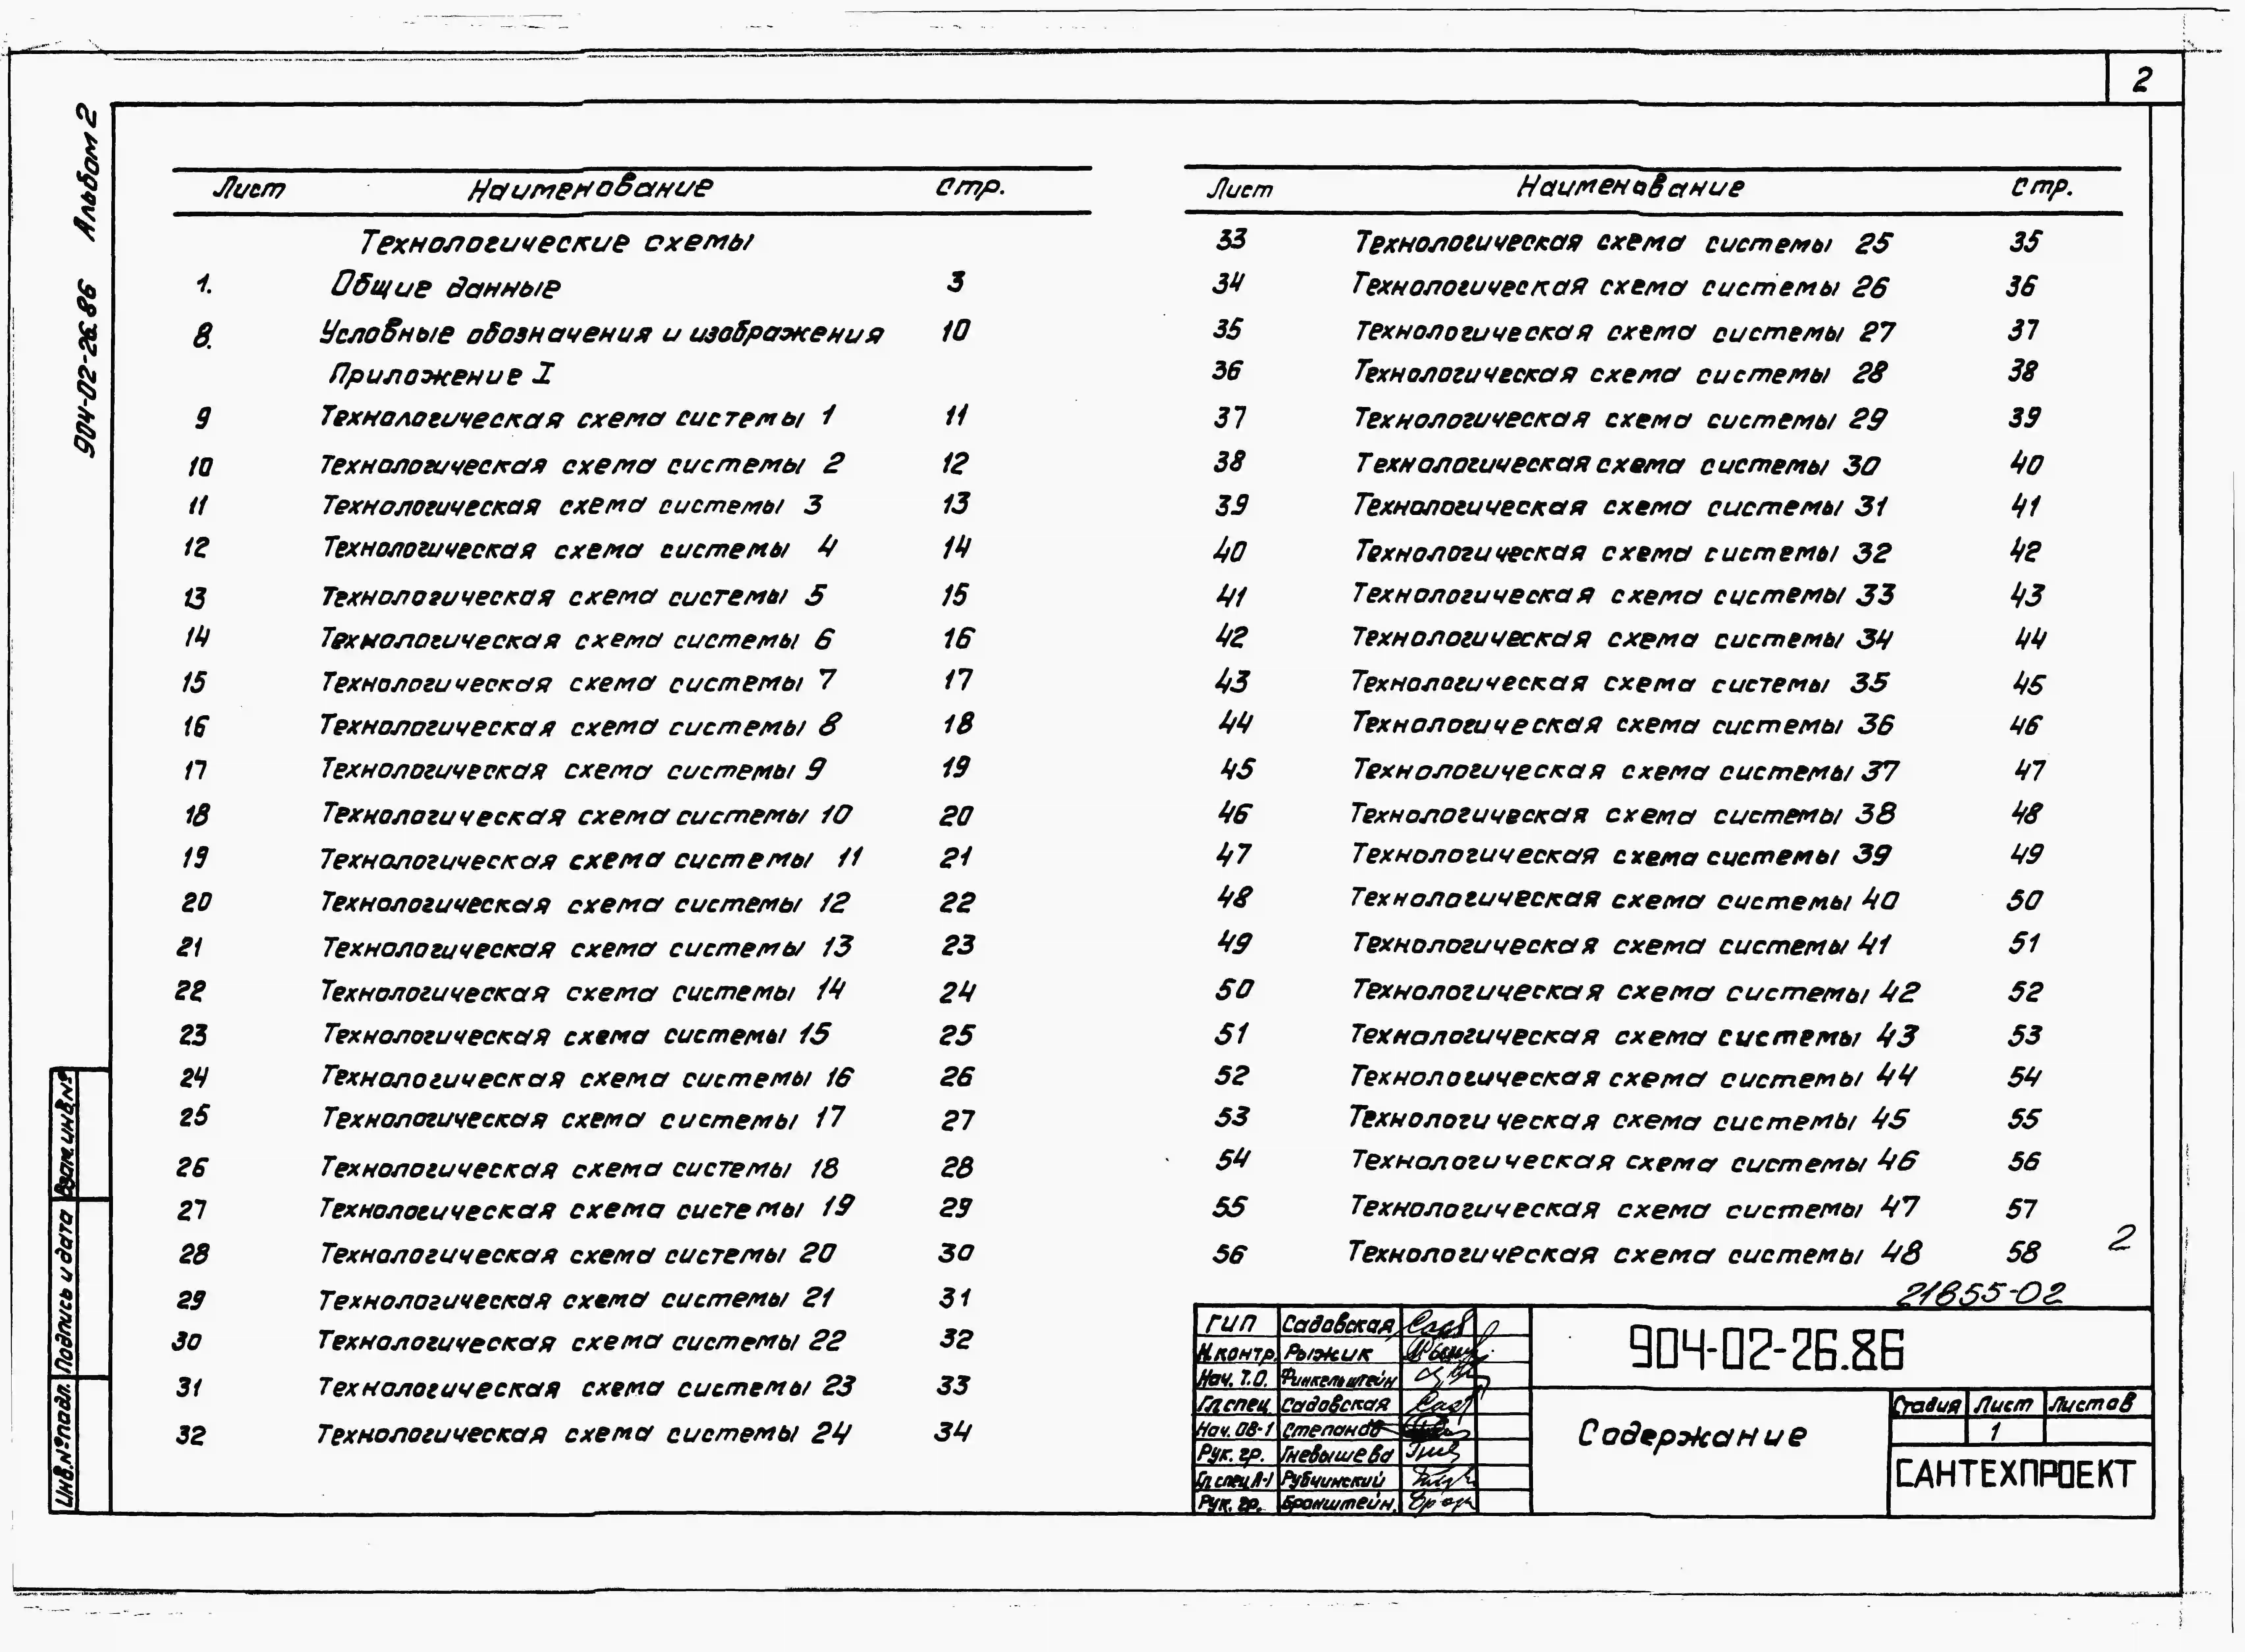 2
904-02-26.86 Альбом 2
Лист Наименование Стр.
Технологические схемы
1. Общие данные 3
8. Условные обозначения и изображения 10
Приложение I
9 Технологическая схема системы 1 11
10 Технологическая схема системы 2 12
11 Технологическая схема системы 3 13
12 Технологическая схема системы 4 14
13 Технологическая схема системы 5 15
14 Технологическая схема системы 6 16
15 Технологическая схема системы 7 17
16 Технологическая схема системы 8 18
17 Технологическая схема системы 9 19
18 Технологическая схема системы 10 20
19 Технологическая схема системы 11 21
20 Технологическая схема системы 12 22
21 Технологическая схема системы 13 23
22 Технологическая схема системы 14 24
23 Технологическая схема системы 15 25
24 Технологическая схема системы 16 26
25 Технологическая схема системы 17 27
26 Технологическая схема системы 18 28
27 Технологическая схема системы 19 29
28 Технологическая схема системы 20 30
29 Технологическая схема системы 21 31
30 Технологическая схема системы 22 32
31 Технологическая схема системы 23 33
32 Технологическая схема системы 24 34
Лист Наименование Стр.
33 Технологическая схема системы 25 35
34 Технологическая схема системы 26 36
35 Технологическая схема системы 27 37
36 Технологическая схема системы 28 38
37 Технологическая схема системы 29 39
38 Технологическая схема системы 30 40
39 Технологическая схема системы 31 41
40 Технологическая схема системы 32 42
41 Технологическая схема системы 33 43
42 Технологическая схема системы 34 44
43 Технологическая схема системы 35 45
44 Технологическая схема системы 36 46
45 Технологическая схема системы 37 47
46 Технологическая схема системы 38 48
47 Технологическая схема системы 39 49
48 Технологическая схема системы 40 50
49 Технологическая схема системы 41 51
50 Технологическая схема системы 42 52
51 Технологическая схема системы 43 53
52 Технологическая схема системы 44 54
53 Технологическая схема системы 45 55
54 Технологическая схема системы 46 56
55 Технологическая схема системы 47 57
56 Технологическая схема системы 48 58
2
21855-02
ГИП Садовская
Н.контр. Рыжик
Нач. Т.О. Финкельштейн
Гл.спец. Садовская
Нач. ОВ-1 Степанов
Рук. гр. Гневышева
Гл.спец А-1 Рубчинский
Рук. гр. Бронштейн.
904-02-26.86
Содержание
Стадия Лист Листов
1
САНТЕХПРОЕКТ
Взам. инв.№
Подпись и дата
Инв.№подл.